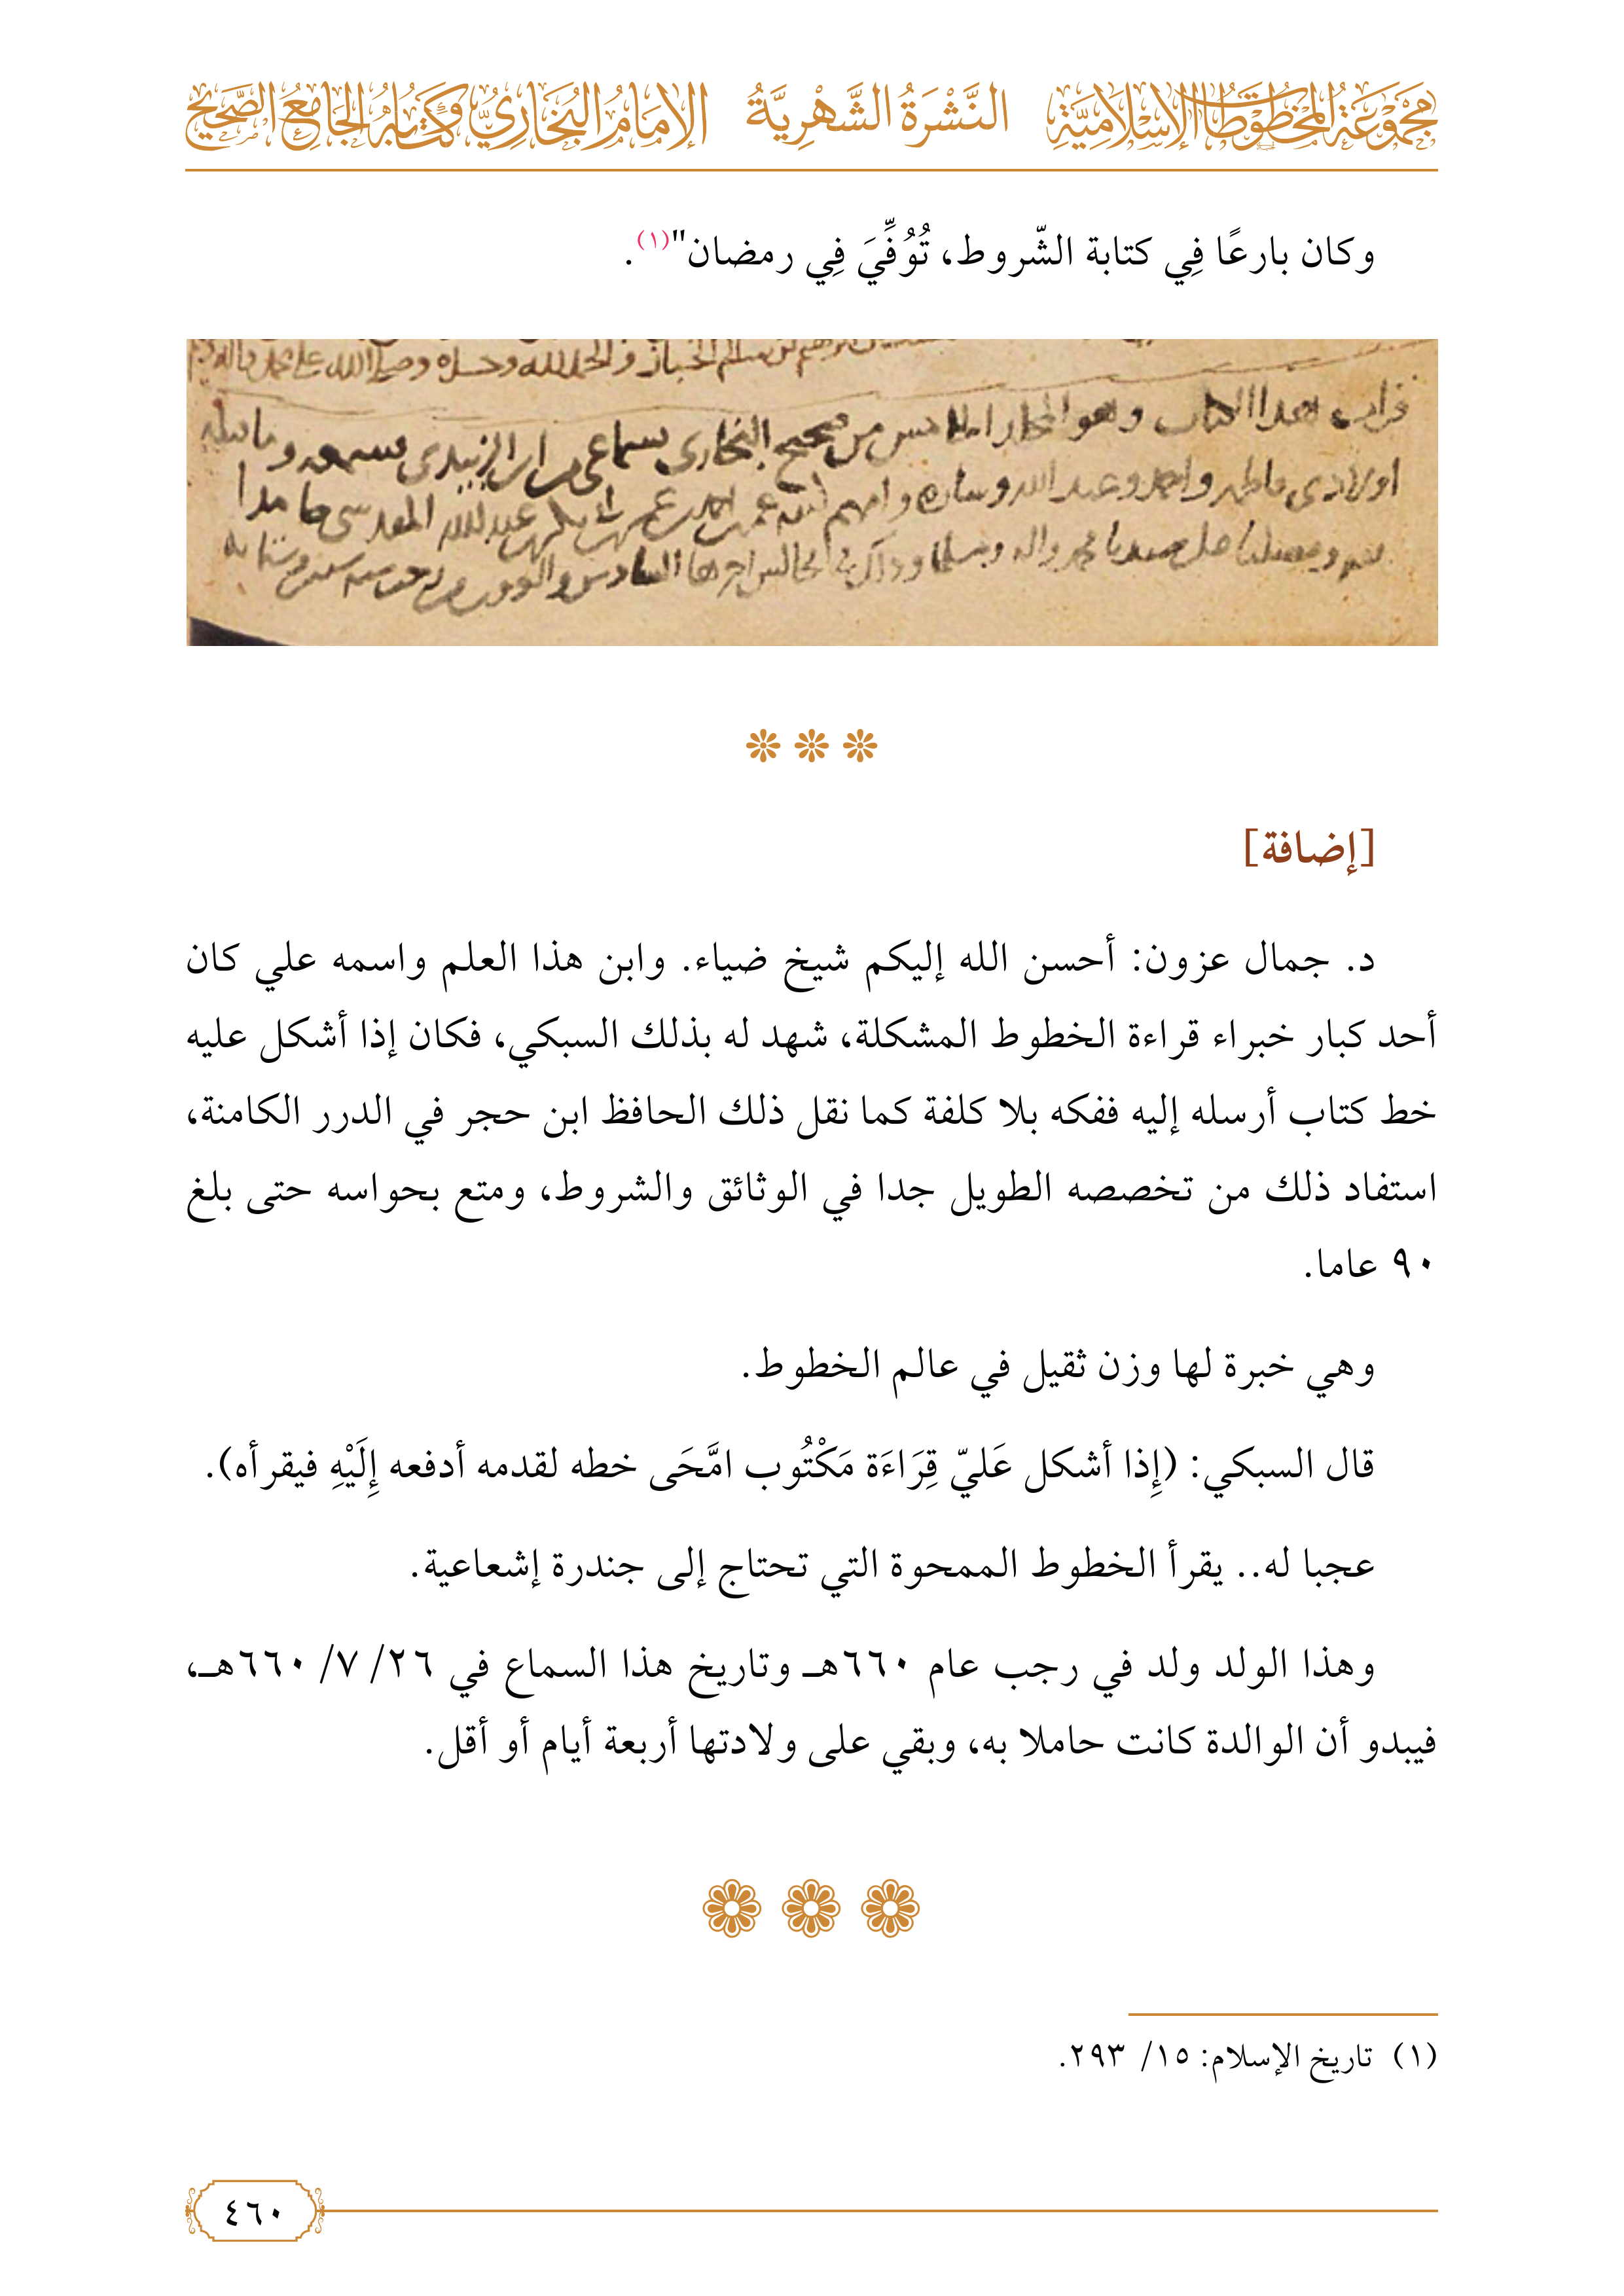 مَجْمُوعَةُ المَخْطُوطَاتِ الإِسْلَامِيَّةِ النَّشْرَةُ الشَّهْرِيَّةُ الإِمَامُ البُخَارِيُّ وَكِتَابُهُ الجَامِعُ الصَّحِيحُ
وكان بارعًا فِي كتابة الشّروط، تُوُفِّيَ فِي رمضان"(١).
والحمد لله وحده وصلى الله على محمد وآله
هذا الكتاب وهو من صحيح البخاري بسماعي من ابن الزبيدي
اولادي واحمد وعبد الله وساره عبد الله المقدسي حامدا
محمد واله
[إضافة]
د. جمال عزون: أحسن الله إليكم شيخ ضياء. وابن هذا العلم واسمه علي كان
أحد كبار خبراء قراءة الخطوط المشكلة، شهد له بذلك السبكي، فكان إذا أشكل عليه
خط كتاب أرسله إليه ففكه بلا كلفة كما نقل ذلك الحافظ ابن حجر في الدرر الكامنة،
استفاد ذلك من تخصصه الطويل جدا في الوثائق والشروط، ومتع بحواسه حتى بلغ
٩٠ عاما.
وهي خبرة لها وزن ثقيل في عالم الخطوط.
قال السبكي: (إِذا أشكل عَليّ قِرَاءَة مَكْتُوب امَّحَى خطه لقدمه أدفعه إِلَيْهِ فيقرأه).
عجبا له.. يقرأ الخطوط الممحوة التي تحتاج إلى جندرة إشعاعية.
وهذا الولد ولد في رجب عام ٦٦٠هـ وتاريخ هذا السماع في ٢٦/ ٧/ ٦٦٠هـ،
فيبدو أن الوالدة كانت حاملا به، وبقي على ولادتها أربعة أيام أو أقل.
(١) تاريخ الإسلام: ١٥/ ٢٩٣.
٤٦٠